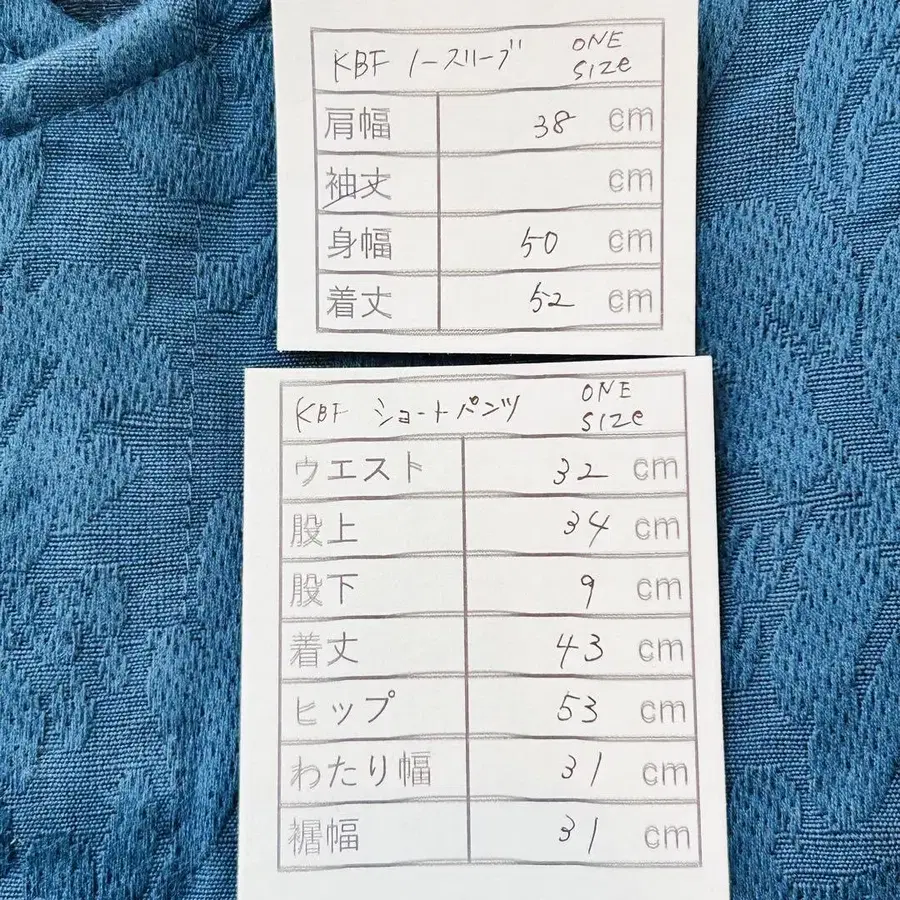 KBF ノースリーブ ONE SIZE
肩幅 38 cm
袖丈 cm
身幅 50 cm
着丈 52 cm
KBF ショートパンツ ONE SIZE
ウエスト 32 cm
股上 34 cm
股下 9 cm
着丈 43 cm
ヒップ 53 cm
わたり幅 31 cm
裾幅 31 cm